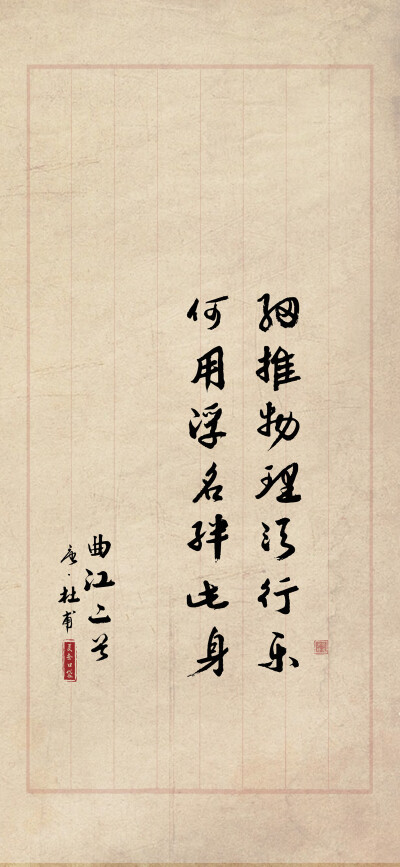 细推物理须行乐
何用浮名绊此身
曲江二首
唐·杜甫